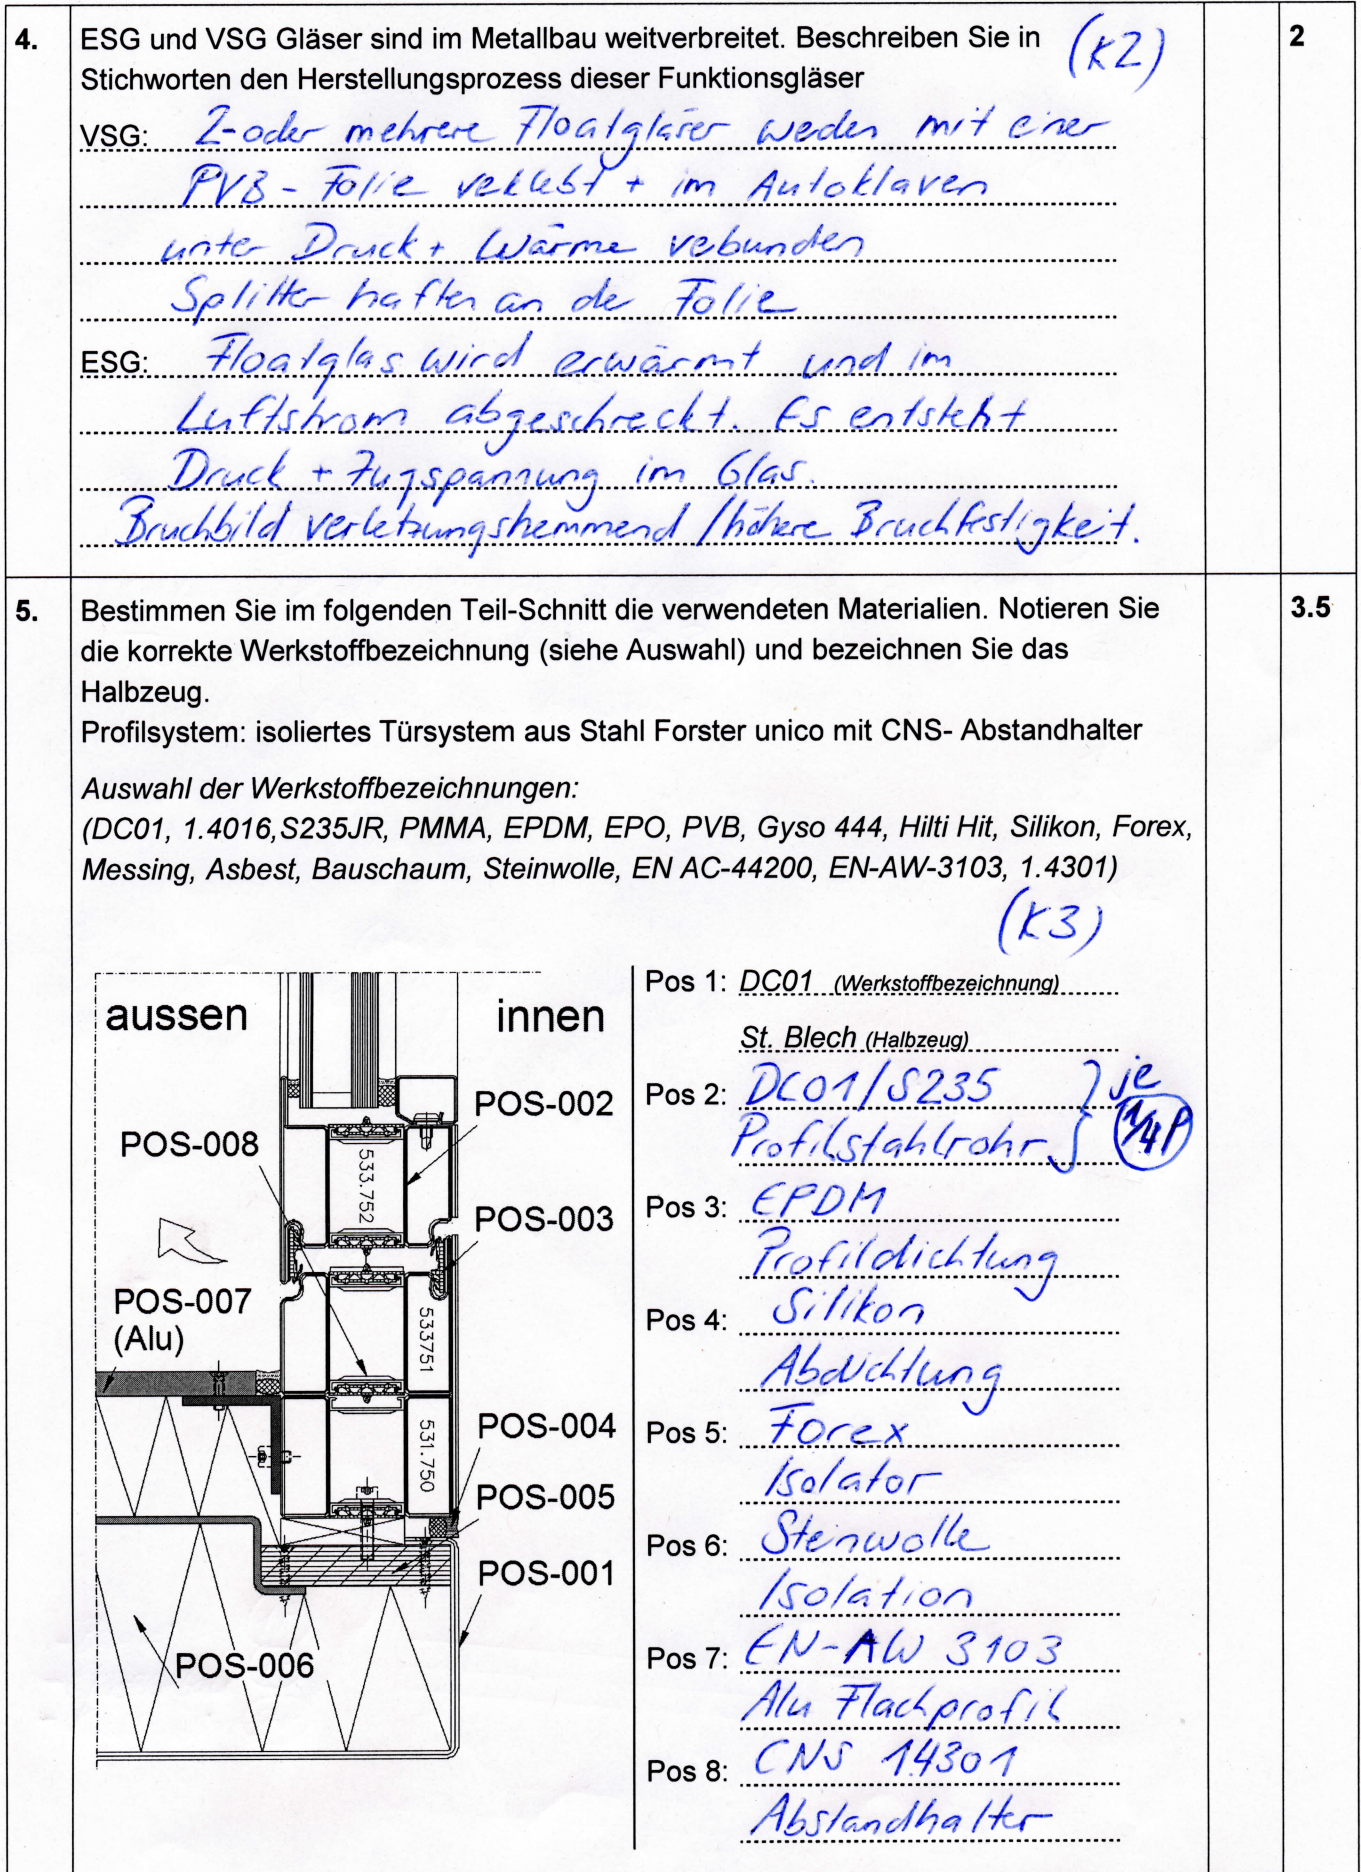 4. ESG und VSG Gläser sind im Metallbau weitverbreitet. Beschreiben Sie in (K2) 2
Stichworten den Herstellungsprozess dieser Funktionsgläser
VSG: 2-oder mehrere Floatgläser weden mit einer
PVB - Folie veklebt + im Autoklaven
unter Druck + Wärme vebunden
Splitter haften an de Folie
ESG: Floatglas wird erwärmt und im
Luftstrom abgeschreckt. Es entsteht
Druck + Zugspannung im Glas.
Bruchbild verletzungshemmend / höhere Bruchfestigkeit.
5. Bestimmen Sie im folgenden Teil-Schnitt die verwendeten Materialien. Notieren Sie 3.5
die korrekte Werkstoffbezeichnung (siehe Auswahl) und bezeichnen Sie das
Halbzeug.
Profilsystem: isoliertes Türsystem aus Stahl Forster unico mit CNS- Abstandhalter
Auswahl der Werkstoffbezeichnungen:
(DC01, 1.4016,S235JR, PMMA, EPDM, EPO, PVB, Gyso 444, Hilti Hit, Silikon, Forex,
Messing, Asbest, Bauschaum, Steinwolle, EN AC-44200, EN-AW-3103, 1.4301)
(K3)
aussen
innen
POS-002
POS-008
533.752
POS-003
POS-007
(Alu)
533751
POS-004
531.750
POS-005
POS-001
POS-006
Pos 1: DC01 (Werkstoffbezeichnung)
St. Blech (Halbzeug)
Pos 2: DC01/S235 } je
Profilstahlrohr 1/4P
Pos 3: EPDM
Profildichtung
Pos 4: Silikon
Abdichtung
Pos 5: Forex
Isolator
Pos 6: Steinwolle
Isolation
Pos 7: EN-AW 3103
Alu Flachprofil
Pos 8: CNS 1.4301
Abstandhalter